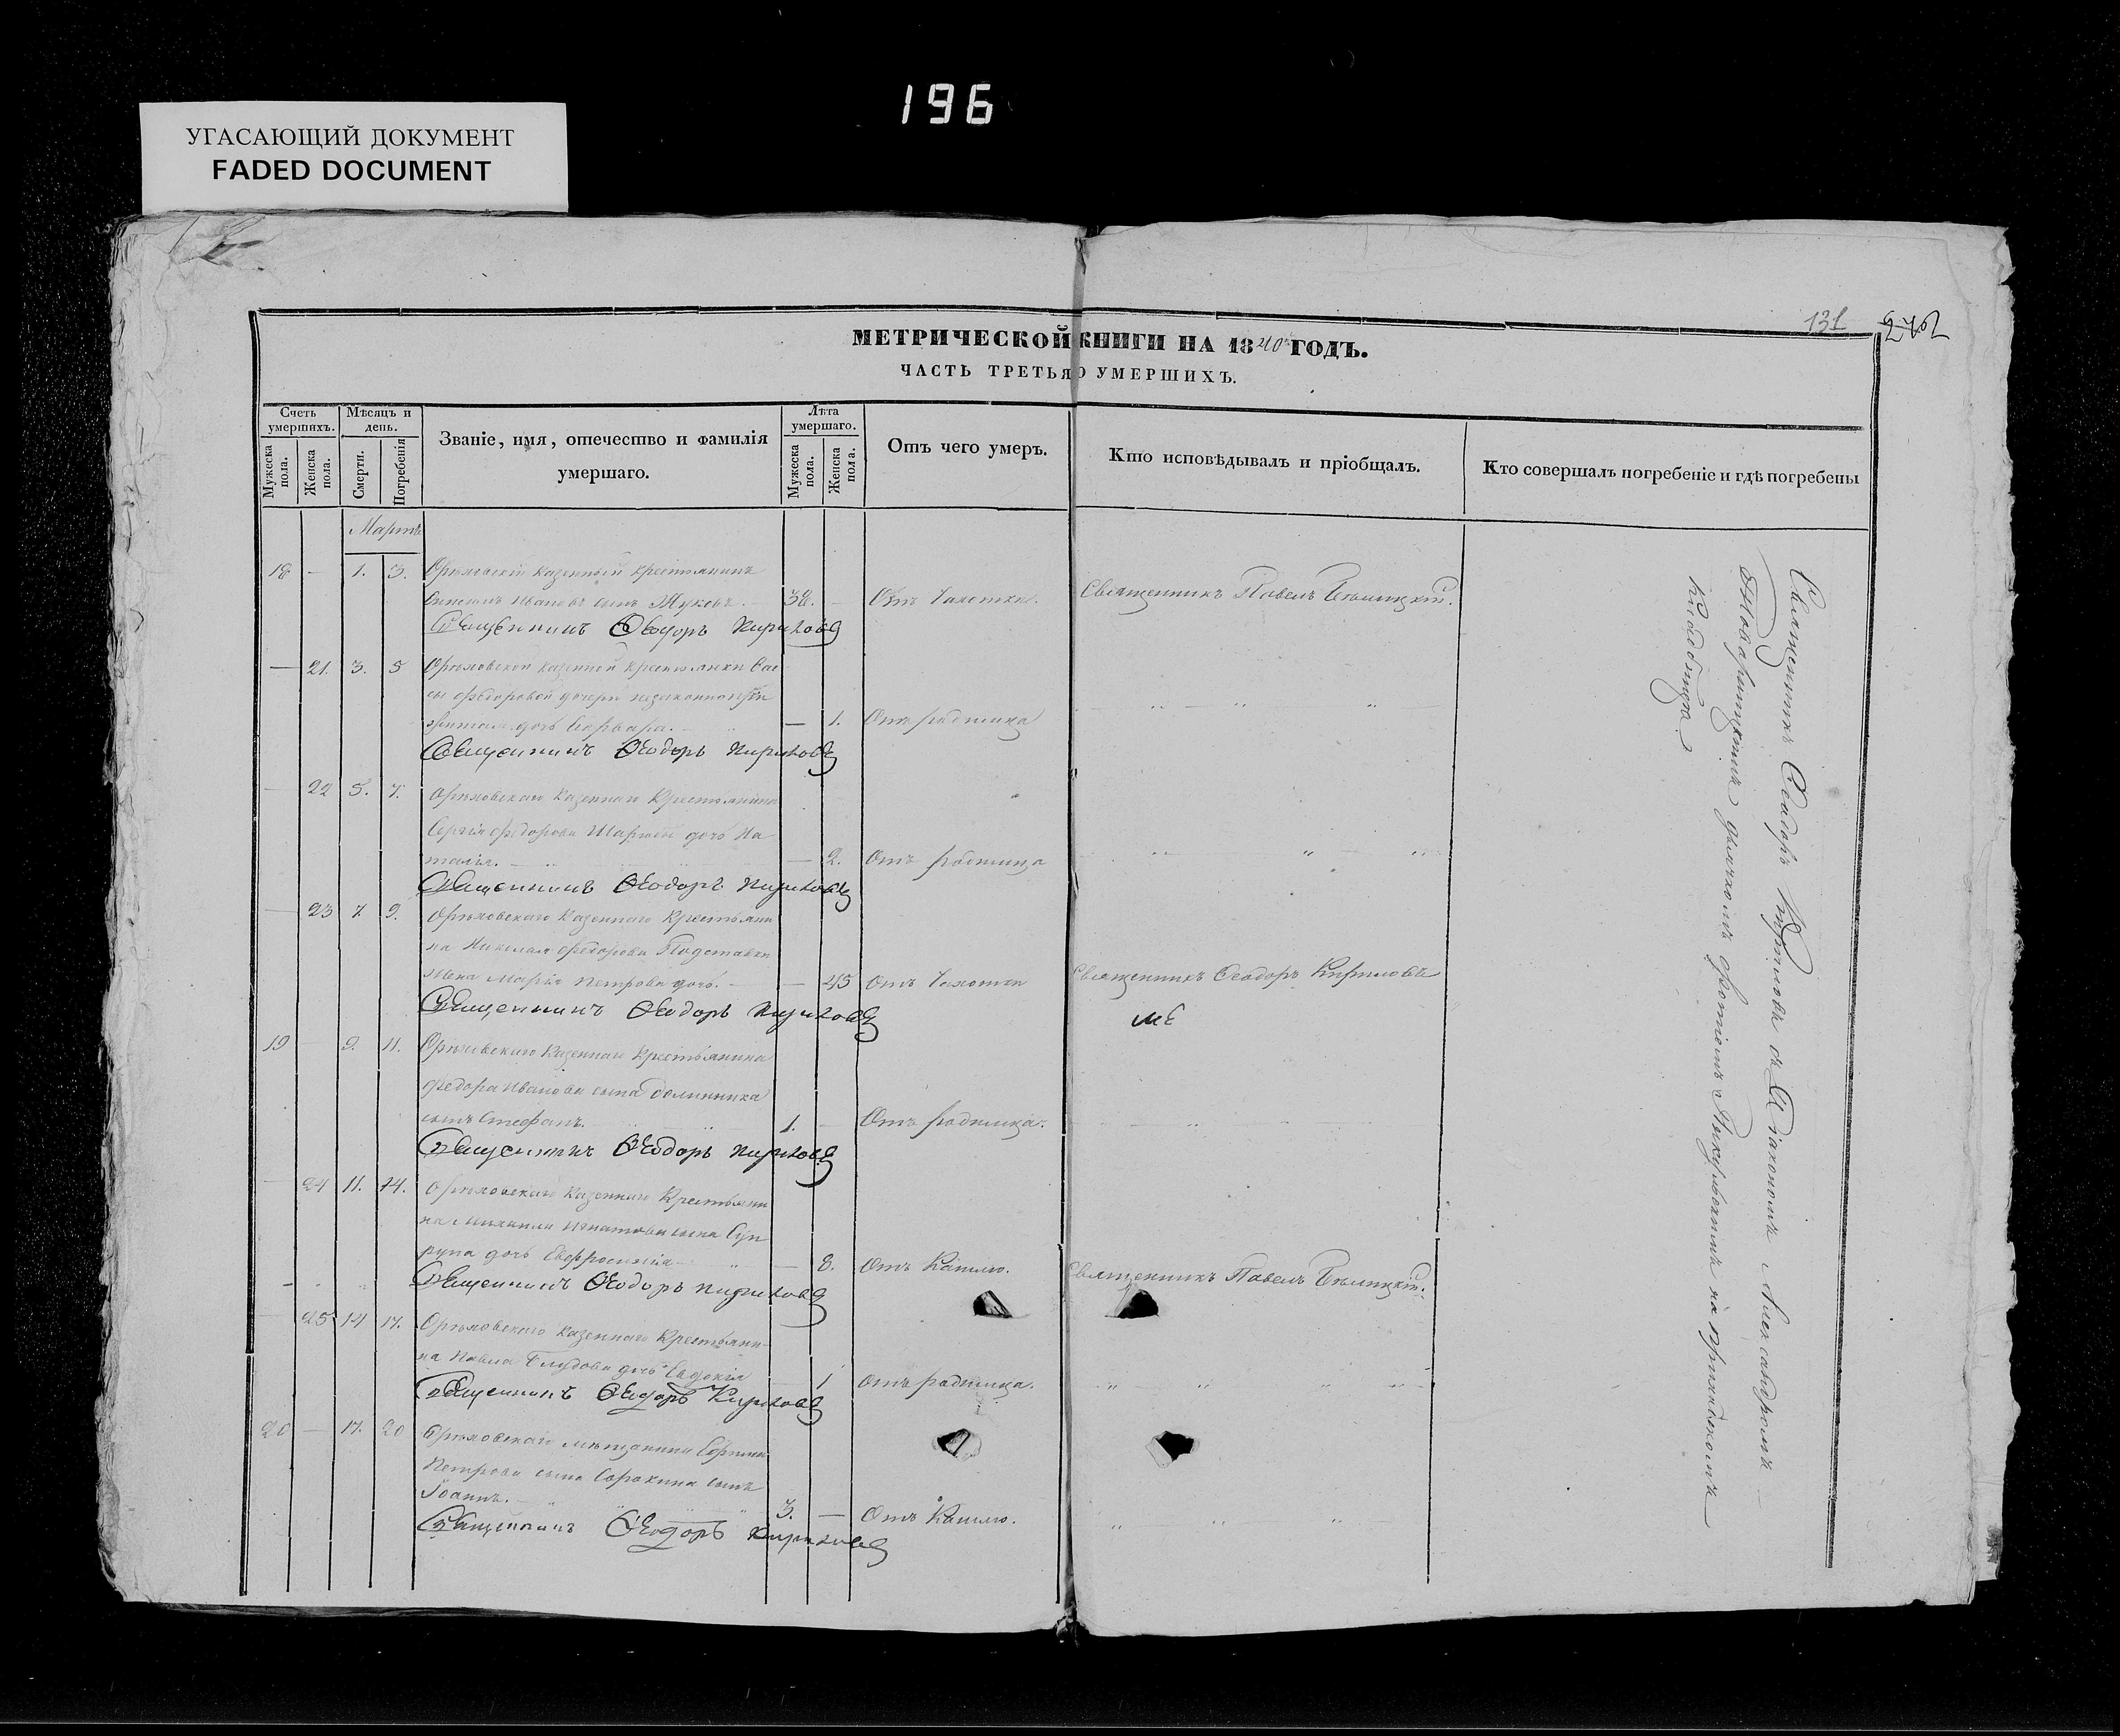 196
УГАСАЮЩИЙ ДОКУМЕНТ
FADED DOCUMENT
131
МЕТРИЧЕСКОЙ КНИГИ НА 1840 ГОДЪ.
ЧАСТЬ ТРЕТЬЯ О УМЕРШИХЪ.
Счетъ умершихъ.
Мужеска пола.
Женска пола.
Мѣсяцъ и день.
Смерти.
Погребенія
Званіе, имя, отечество и фамилія
умершаго.
Лѣта умершаго.
Мужеска пола.
Женска пола.
Отъ чего умеръ.
Кто исповѣдывалъ и пріобщалъ.
Кто совершалъ погребеніе и гдѣ погребены
Мартъ
18 — 1. 3. Орѣховскій казенный крестьянинъ
Ивановъ сынъ Жуковъ. 38. — Отъ Чахотки. Священникъ Павелъ Бѣлицкій.
Священникъ Ѳеодоръ Кириловъ
— 21. 3. 5 Орѣховской казенной крестьянки Вас
сы Федоровой дочери незаконнопри
дочь Варвара. — 1. Отъ родимца
Священникъ Ѳеодоръ Кириловъ
— 22 5. 7. Орѣховскаго казеннаго крестьянина
Сергія Федорова дочь На
талія. — 2. Отъ родимца
Священникъ Ѳеодоръ Кириловъ
— 23 7. 9. Орѣховскаго казеннаго крестьяни
на Николая Федорова Подставки
жена Марія Петрова дочь. — 45 Отъ Чахотки Священникъ Ѳеодоръ Кириловъ
Священникъ Ѳеодоръ Кириловъ
19 — 9. 11. Орѣховскаго казеннаго крестьянина
Федора Иванова сына
сынъ Стефанъ. 1. — Отъ родимца.
Священникъ Ѳеодоръ Кириловъ
— 24 11. 14. Орѣховскаго казеннаго крестьяни
на Михаила Игнатова сына Суп
руна дочь Евфросинія — 8. Отъ Кашлю. Священникъ Павелъ Бѣлицкій.
Священникъ Ѳеодоръ Кириловъ
— 25 14 17. Орѣховскаго казеннаго крестьяни
на Павла дочь Евдокія 1 Отъ родимца.
Священникъ Ѳеодоръ Кириловъ
20 — 17. 20 Орѣховскаго мѣщанина
Петрова сына Сорокина сынъ
Іоаннъ. 3. — Отъ Кашлю.
Священникъ Ѳеодоръ Кириловъ
Священникъ Ѳеодоръ Кириловъ съ Діакономъ Александромъ
дьячкомъ на приходскомъ
кладбищѣ.